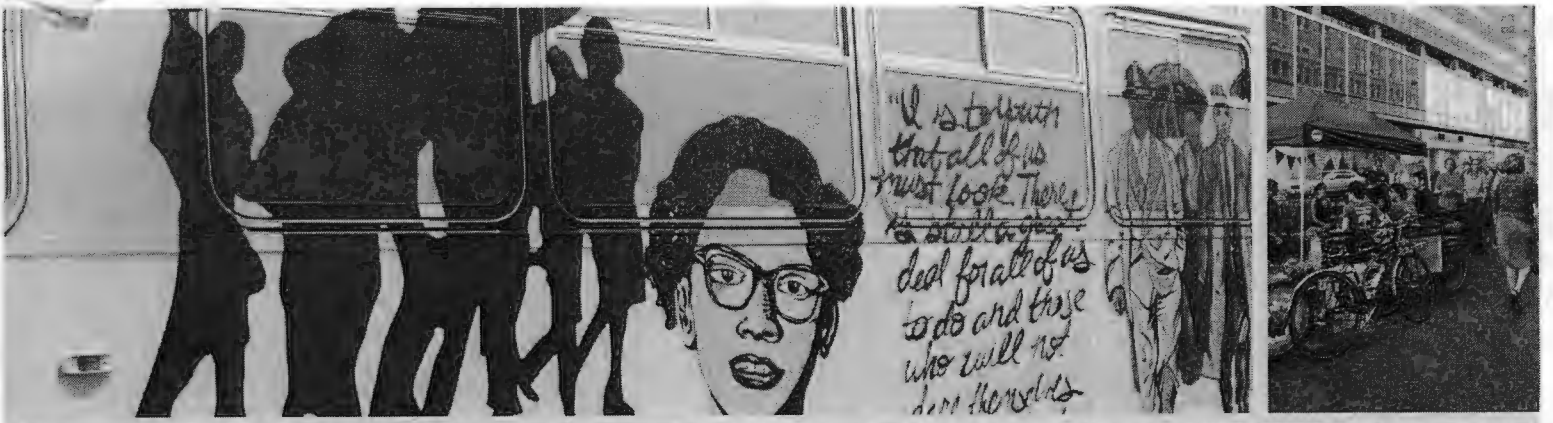 "It is to youth
that all of us
must look. There
is still a great
deal for all of us
to do and those
who will not
themselves